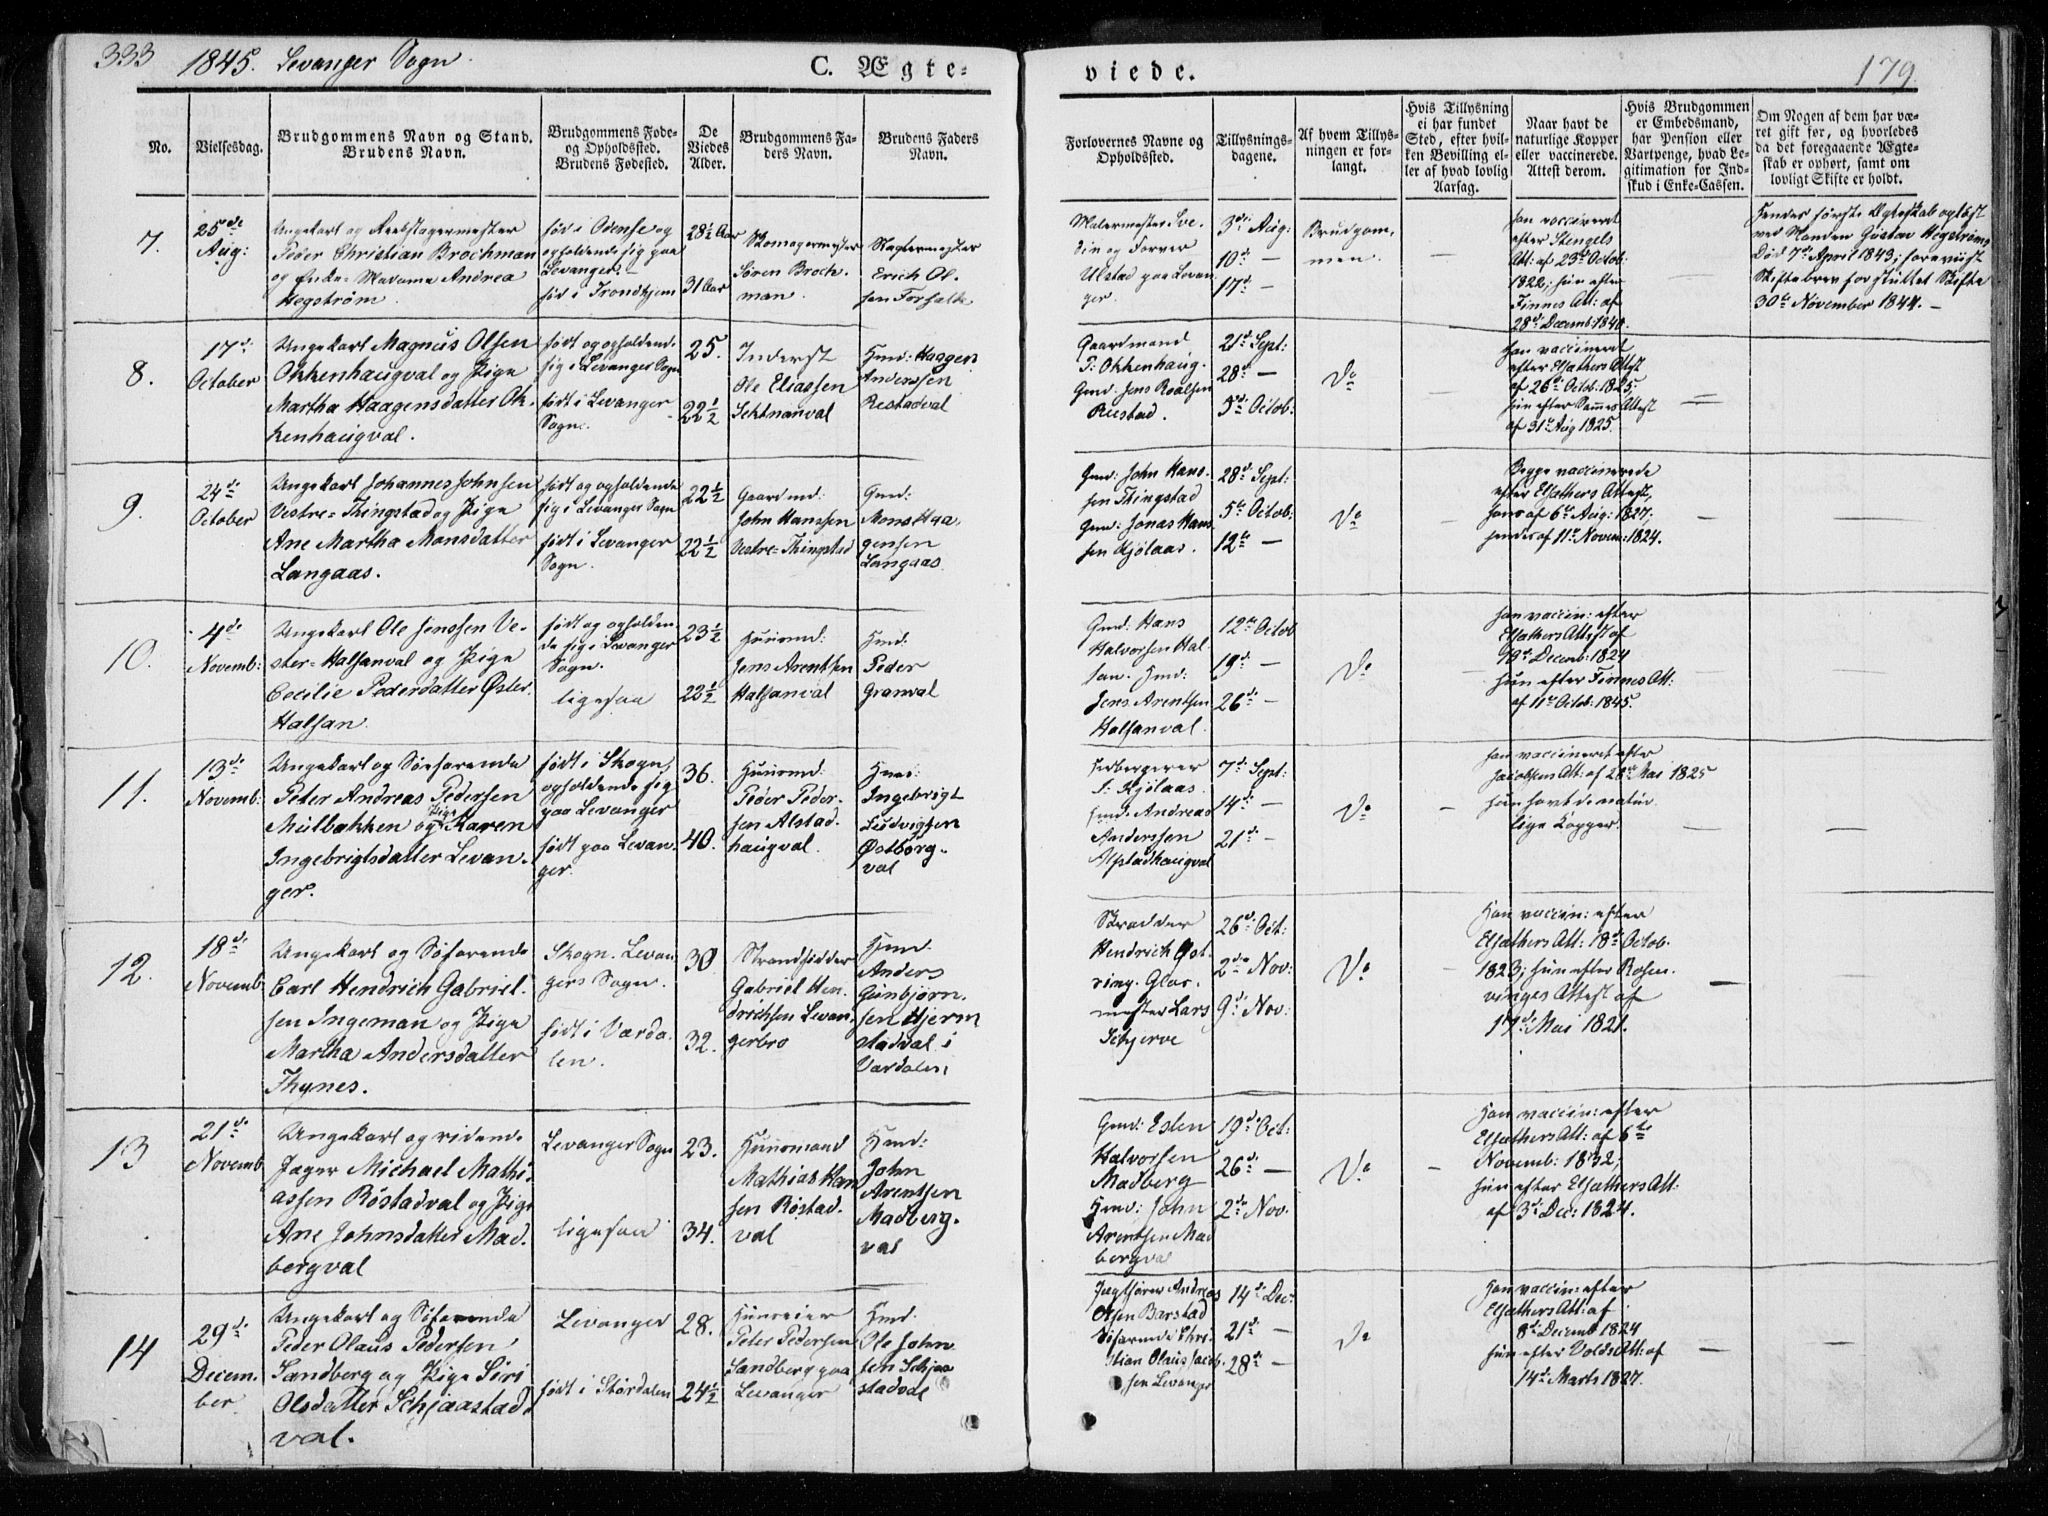 333 1845. Levanger Sogn.
C. Ægte-
viede.
179.
No.
Vielsesdag.
Brudgommens Navn og Stand.
Brudens Navn.
Brudgommens Føde-
og Opholdssted.
Brudens Fødested.
De
Viedes
Alder.
Brudgommens Fa-
ders Navn.
Brudens Faders
Navn.
Forlovernes Navne og
Opholdssted.
Tillysnings-
dagene.
Af hvem Tillys-
ningen er for-
langt.
Hvis Tillysning
ei har fundet
Sted, efter hvil-
ken Bevilling el-
ler af hvad lovlig
Aarsag.
Naar havt de
naturlige Kopper
eller vaccinerede.
Attest derom.
Hvis Brudgommen
er Embedsmand,
har Pension eller
Vartpenge, hvad Le-
gitimation for Ind-
skud i Enke-Cassen.
Om Nogen af dem har væ-
ret gift før, og hvorledes
da det foregaaende Ægte-
skab er ophørt, samt om
lovligt Skifte er holdt.
7.
25de
Aug:
Ungekarl og Reebslagermester
Peder Christian Brochman
og Enke-Madame Andrea
Hegstrøm.
fød i Odense og
opholdende sig paa
Levanger.
fød i Trondhjem
28½ Aar
31 Aar
Skomagermester
Søren Broch-
man.
Slagtermester
Erich Ol-
sen Forfalte
Malermester Sve-
din og Farver
Ulstad paa Levan
ger.
3die Aug:
10de —
17de —
Brudgom-
men.
—
han vaccineret
efter Stengels
Att: af 23de Octob:
1822; hun efter
Finnes Att: af
28de Decemb: 1840.
Hendes første Ægteskab opløst
ved Manden Gustav Hegstrøms
Død 7de April 1843; foreviist
Skiftebrev for sluttet Skifte
30te November 1844. —
8.
17de
October
Ungekarl Magnus Olsen
Okkenhaugval og Pige
Martha Haagensdatter Ok-
kenhaugval.
født og opholdende
sig i Levanger Sogn
født i Levanger
Sogn.
25.
22½
Inderst
Ole Eliassen
Sektnanval
Huusmd: Haagen
Anderssen
Restadval
Gaardmand
P: Okkenhaug.
Gmd: Jens Roalsen
Rustad.
21de Sept:
28de —
5te Octob:
Do
—
han vaccineret
efter Elsathers Attest
af 26de Octob: 1825.
hun efter Sammes Attest
af 31te Aug 1825.
9.
24de
October
Ungekarl Johannes Johnsen
Vestre-Thingstad og Pige
Ane Martha Monsdatter
Langaas.
født og opholdende
sig i Levanger Sogn
født i Levanger
Sogn.
22½
22½
Gaardmd:
John Hanssen
Vestre-Thingstad
Gmd:
Mons Haa-
gensen
Langaas.
Gmd: John Hans-
sen Thingstad
Gmd: Jonas Hans
sen Kjølaas.
28de Sept:
5te Octob:
12te —
Do
—
Begge vaccinerede
efter Elsathers Attest,
hans af 6te Aug: 1827;
hendes af 11te Novem: 1824.
10.
4de
Novemb:
Ungekarl Ole Jenssen Ve-
ster-Halsanval og Pige
Cecilie Pedersdatter Øster-
Halsan.
født og opholden-
de sig i Levanger
Sogn.
ligesaa
23½
22½
Huusmd:
Jens Arentsen
Halsanval
Hmd:
Peder
Granval
Gmd: Hans
Halvorsen Hal
san. Hmd:
Jens Arentsen
Halsanval.
12te Octob
19de —
26de —
Do
han vaccin: efter
Elsathers Attest af
18de Decemb: 1824
hun efter Finnes Att:
af 11te Octob: 1845.
11.
13de
Novemb:
Ungekarl og Søefarende
Peter Andreas Pedersen
Mulbakken og Pige Karen
Ingebrigtsdatter Levan-
ger.
født i Skogn,
opholdende sig
paa Levanger
født paa Levan-
ger.
36.
40.
Huusmd:
Peder Peder-
sen Alstad-
haugval.
Hmd:
Ingebrigt
Ludvigsen
Østborg-
val
Kjølaas.
Hmd: Andreas
Anderssen
Alstadhaugval
7de Sept:
14de —
21de —
Do
—
han vaccineret efter
Jacobsens Att: af 28de Mai 1825
hun havt de natur-
lige Kopper.
12.
18de
Novemb
Ungekarl og Søfarende
Carl Hendrich Gabriel-
sen Ingeman og Pige
Martha Andersdatter
Thynes.
Skogn. Levan
gers Sogn.
født i Værda-
len.
30
32.
Strandsidder
Gabriel Hen-
drichsen Levan-
gerbro
Hmd.
Anders
Gunbjørn-
sen Hjerm
stadval i
Værdalen.
Skrædder
Hendrich Øst-
ring. Glar-
mester Lars
Schjerve
26de Oct:
2den Nov:
9de Nov:
Do
—
Han vaccin: efter
Elsathers Att: 18de Octob.
1823; hun efter Rosen-
vinges Attest af
17de Mai 1821.
13
21de
Novemb
Ungekarl og ridende
Jæger Michael Mathi-
assen Røstadval og Pige
Ane Johnsdatter Mad-
bergval
Levanger Sogn
ligesaa
23.
34.
Huusmand
Mathias Han
sen Røstad-
val
Hmd:
John
Arentsen
Madberg-
val
Gmd: Esten
Halvorsen
Madberg
Hmd: John
Arentsen Mad
bergval
19de Oct:
26de —
2den Nov.
Do
—
Han vaccin: efter
Elsathers Att: af 6te
Novemb: 1832;
hun efter Elsathers Att:
af 3de Dec: 1824.
14
29de
Decem-
ber
Ungekarl og Søfarende
Peder Olaus Pedersen
Sandberg og Pige Siri
Olsdatter Schjaastad-
val.
Levanger
født i Størdalen
28.
24½
Huuseier
Peter Pedersen
Sandberg paa
Levanger
Hmd.
Ole John
sen Schjaa
stadval
Jægtfører Andreas
Olsen Barstad
Søfarende Chri-
stian Olaus Jacob-
sen Levanger
14de Dec:
21de —
28de —
Do
Han vaccin: efter
Elsathers Att: af
8de Decemb 1824
hun efter Volds Att: af
14de Marts 1827.